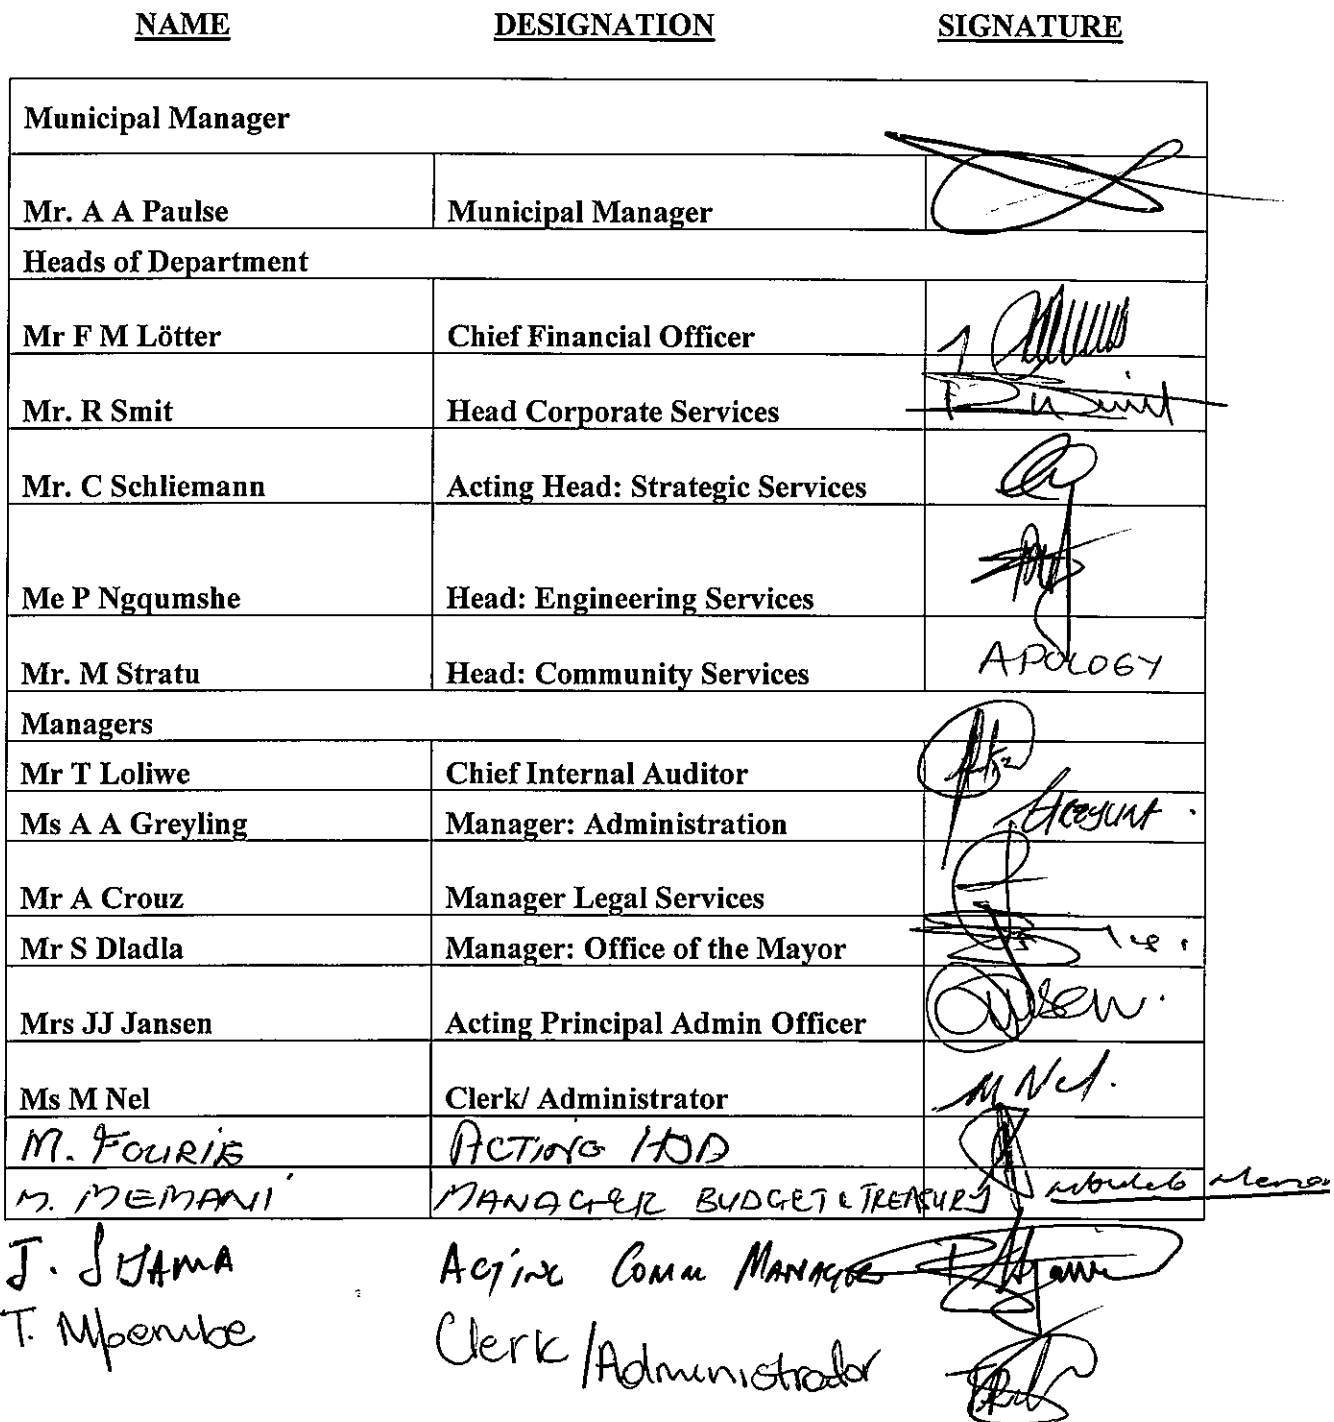 NAME DESIGNATION SIGNATURE
Municipal Manager
Mr. A A Paulse Municipal Manager
Heads of Department
Mr F M Lötter Chief Financial Officer
Mr. R Smit Head Corporate Services
Mr. C Schliemann Acting Head: Strategic Services
Me P Ngqumshe Head: Engineering Services
Mr. M Stratu Head: Community Services APOLOGY
Managers
Mr T Loliwe Chief Internal Auditor
Ms A A Greyling Manager: Administration
Mr A Crouz Manager Legal Services
Mr S Dladla Manager: Office of the Mayor
Mrs JJ Jansen Acting Principal Admin Officer
Ms M Nel Clerk/ Administrator M Nel.
M. FOURIE ACTING HOD
M. MEMANI MANAGER BUDGET & TREASURY
J. Acting Comm MANAGER
T. Clerk/Administrator